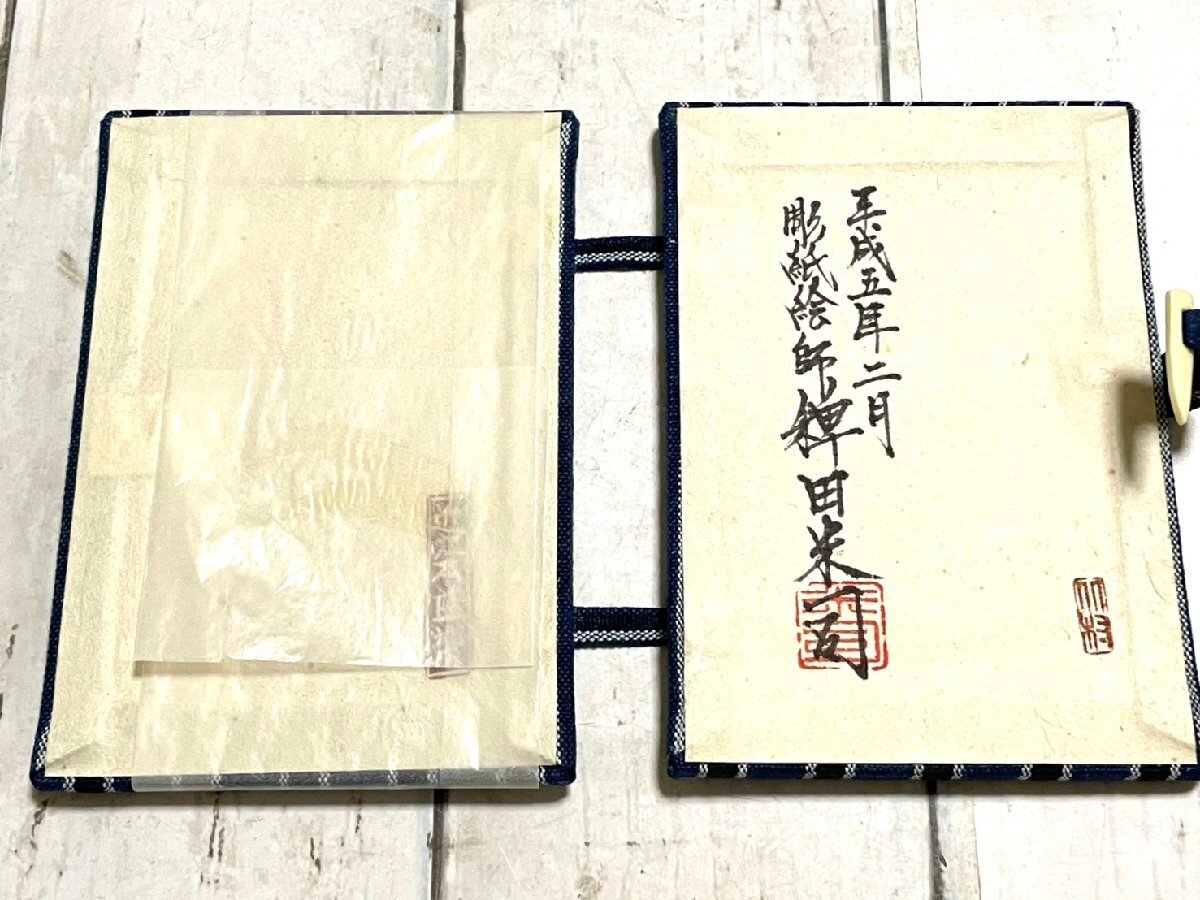 平成五年二月
彫紙絵師 稗田米司